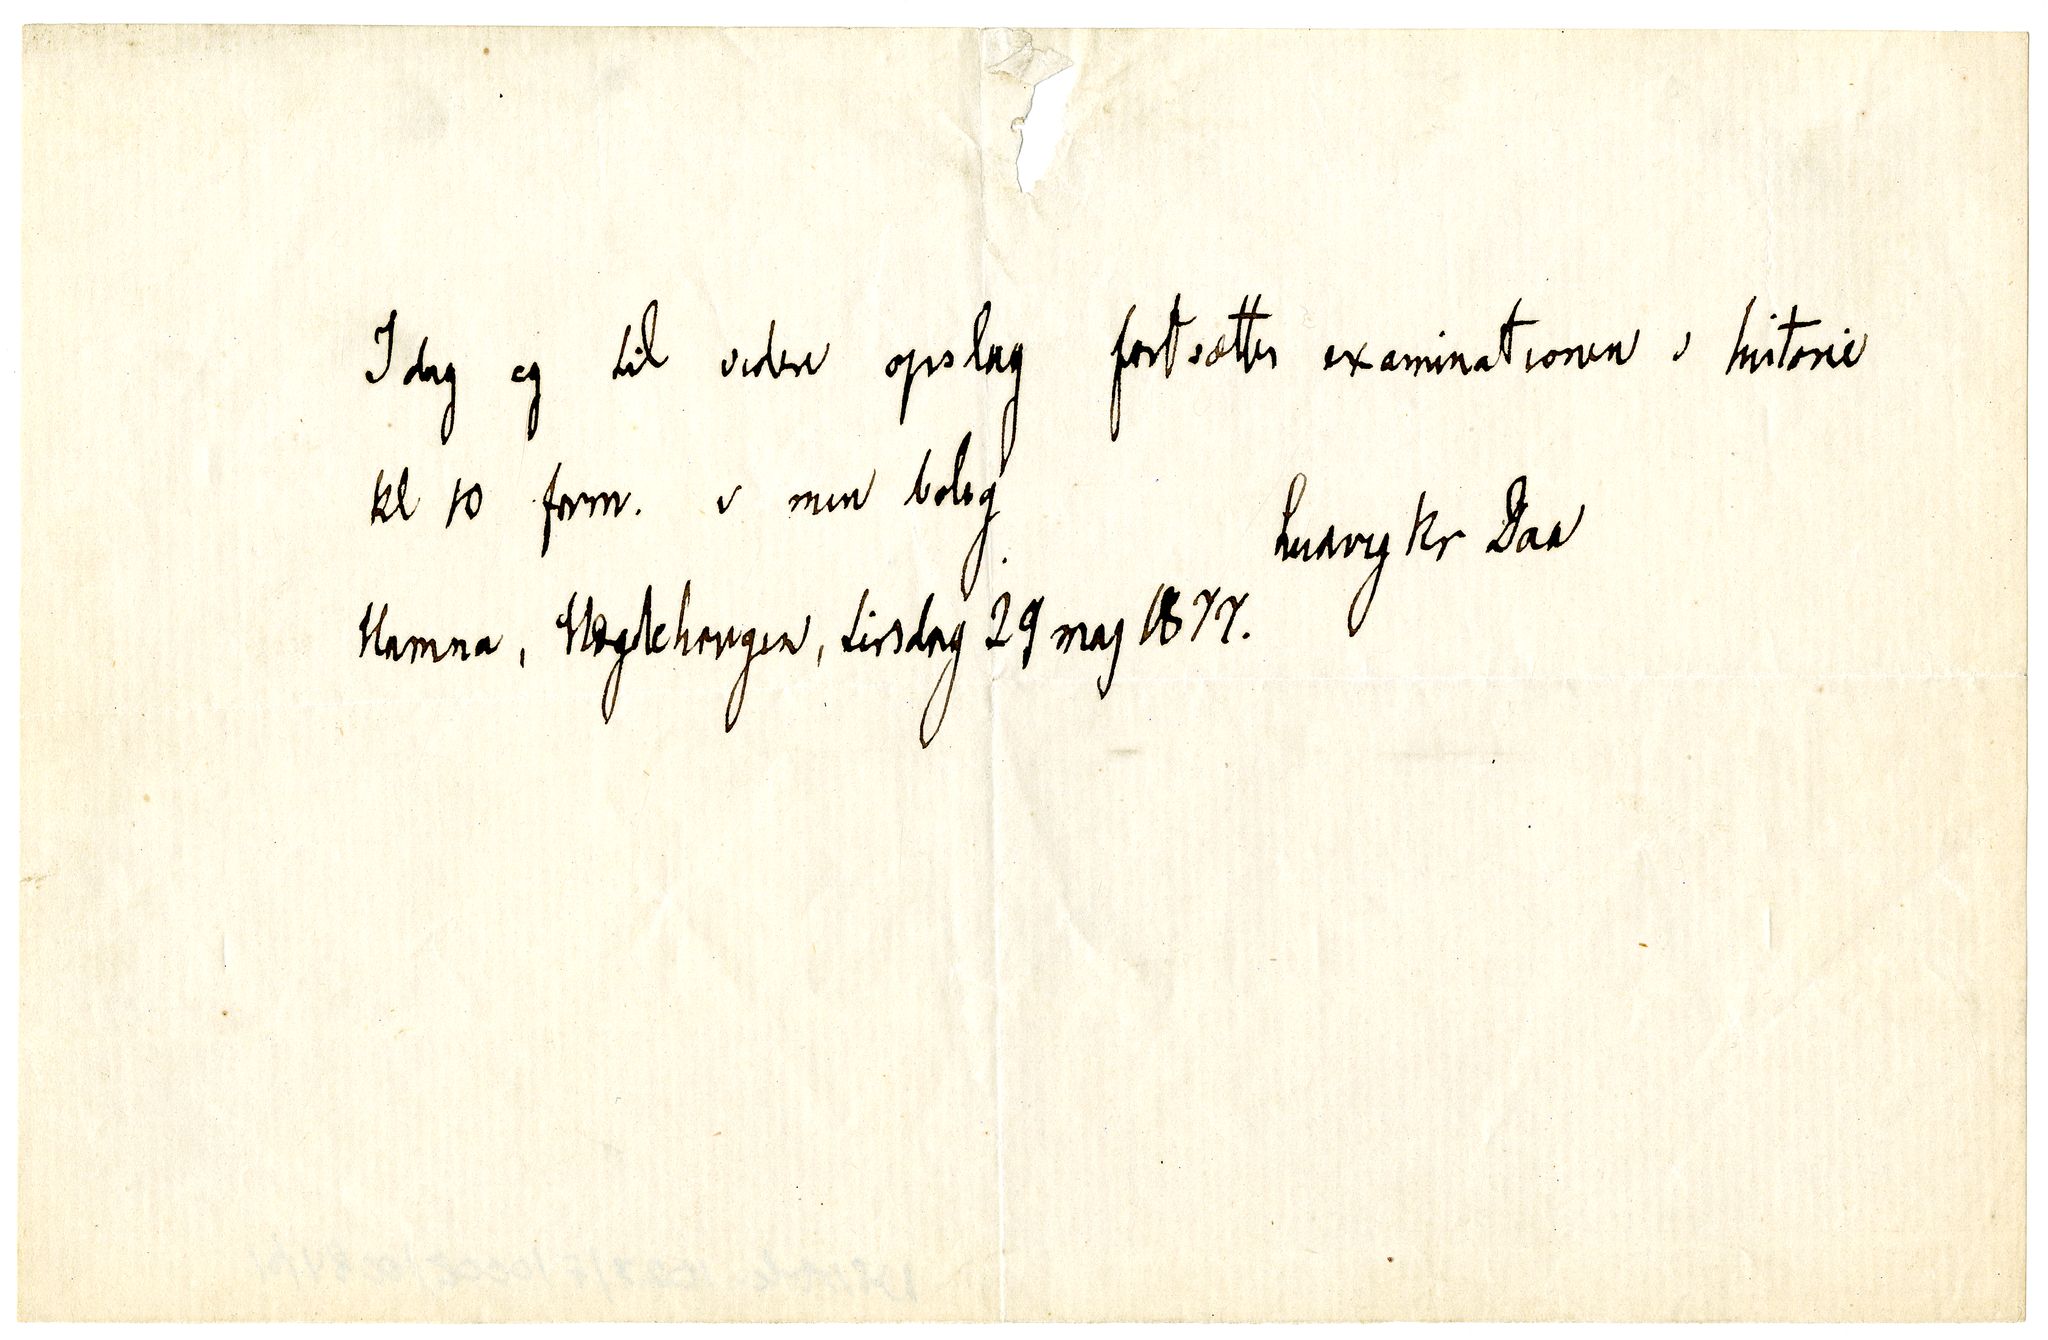 I dag og til videre opslag fortsættes examinationen i historie
kl 10 form. i min bolig
Ludvig Kr Daa
Hamna, Hægdehaugen, tirsdag 29 maj 1877.